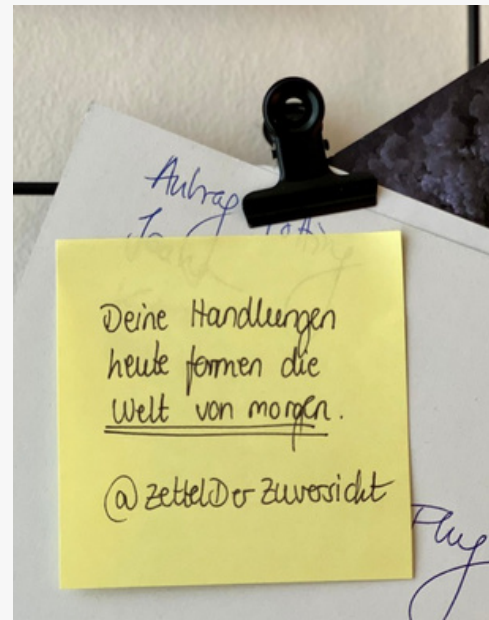 Antrag
Deine Handlungen
heute formen die
Welt von morgen.
@zettelDerZuversicht